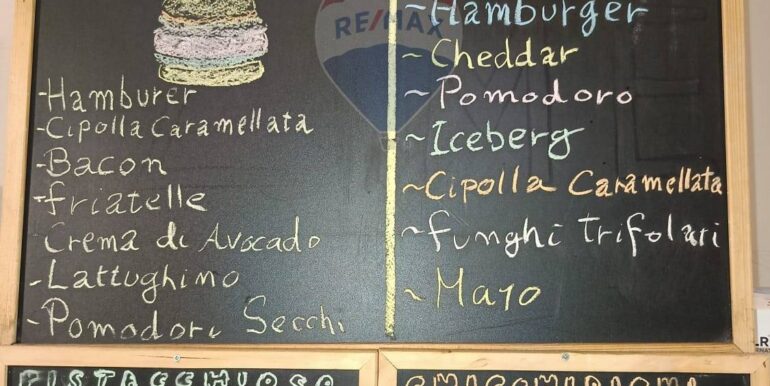 -Hamburer
-Cipolla Caramellata
-Bacon
-friatelle
Crema di Avocado
-Lattughino
-Pomodori Secchi
RE/MAX
~Hamburger
~Cheddar
~Pomodoro
~Iceberg
~Cipolla Caramellata
~funghi trifolati
~Mayo
PISTACCHIOSO